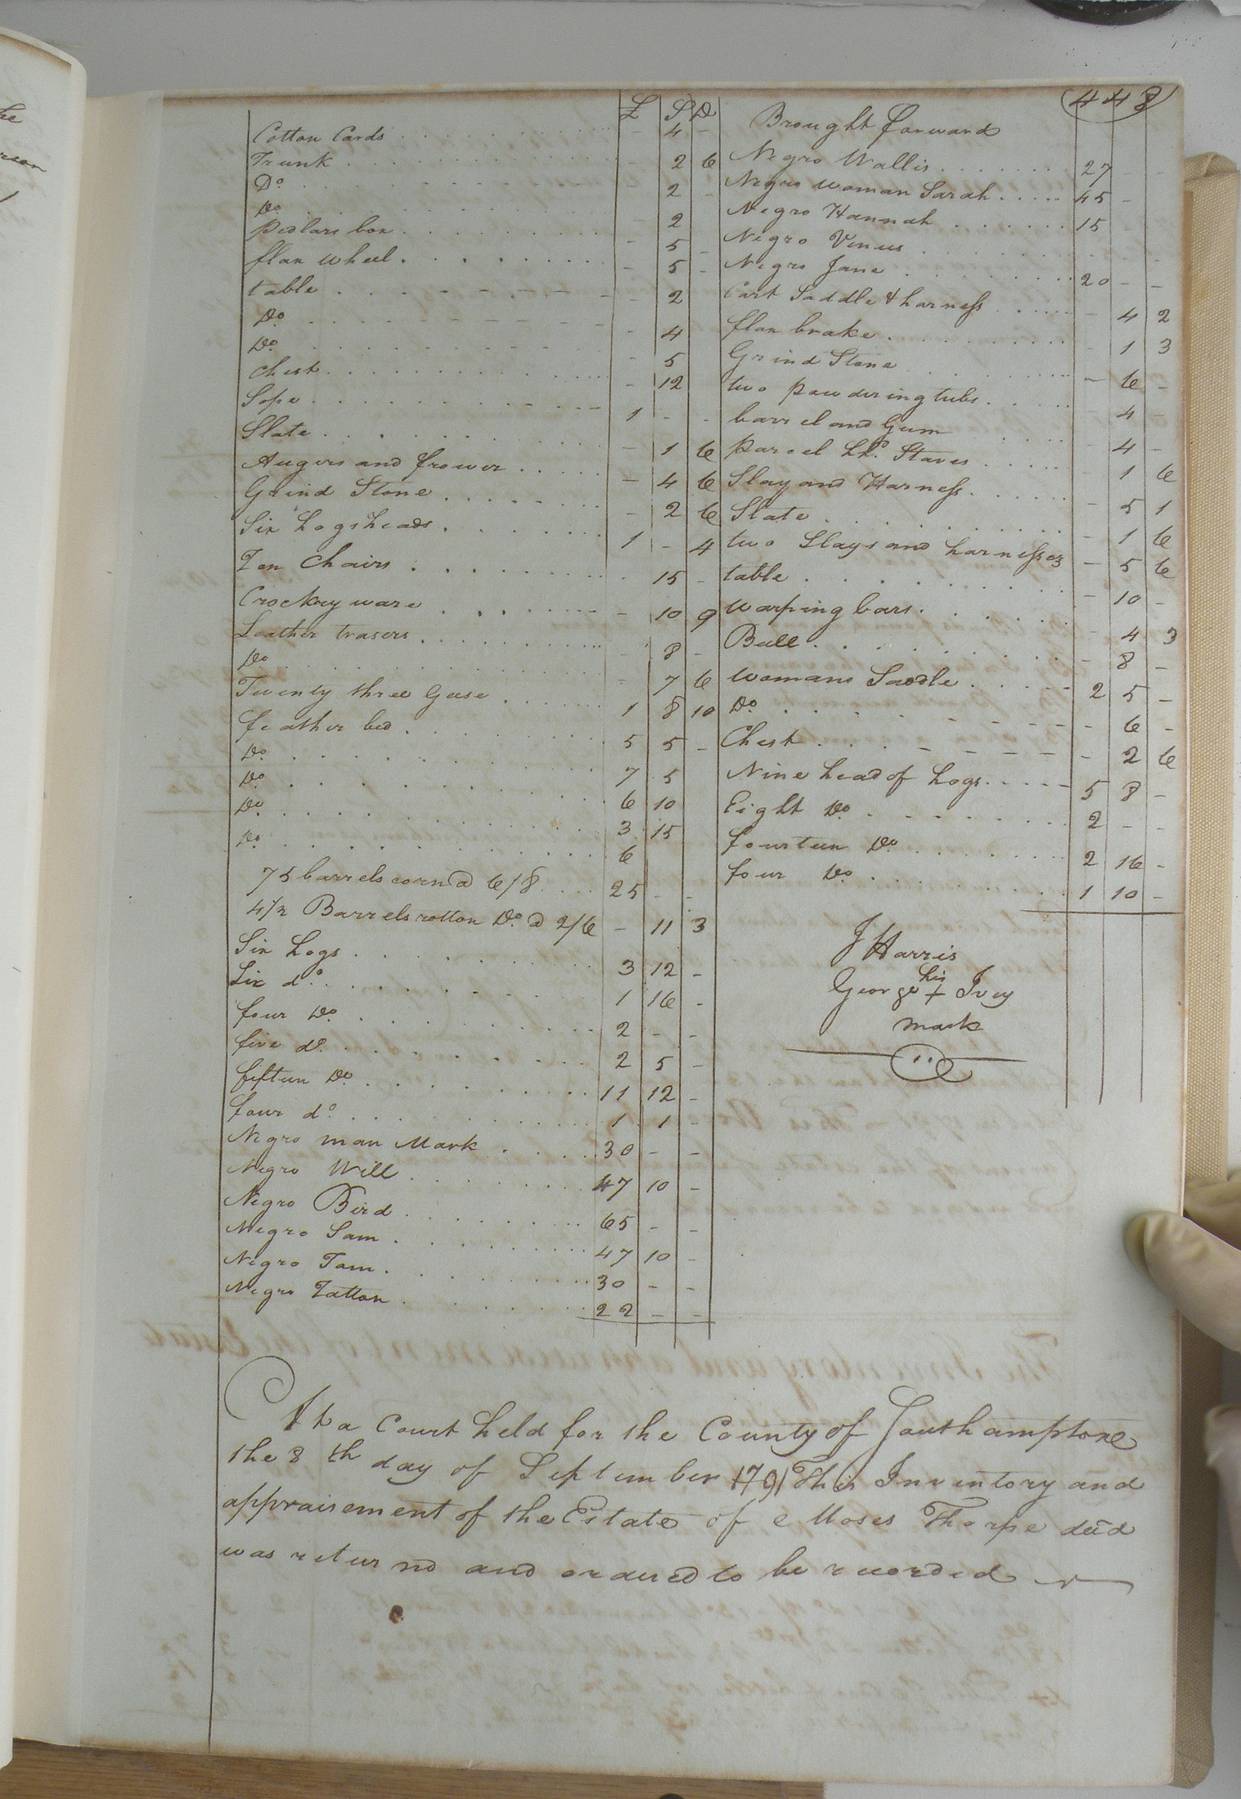 448
£ S D
Cotton Cards - 4 -
Trunk - 2 6
Do - 2 -
Do - 2
Pedlars box - 5 -
flax wheel - 5 -
table - 2
Do - 4
Do - 5
Chest - 12
Sope 1 - -
Slate - 1 6
Augers and frower - 4 6
Grind Stone - 2 6
Six hogsheads 1 - 4
Ten Chairs 15 -
Crockery ware - 10 9
Leather trasers - 8 -
Do - 7 6
Twenty three Geese 1 8 10
feather bed 5 5 -
Do 7 5
Do 6 10
Do 3 15
Do 6
75 barrels corn @ 6/8 25 - -
4 1/2 Barrels rotton Do @ 2/6 - 11 3
Six hogs 3 12 -
Six do 1 16 -
four Do 2 - -
five do 2 5 -
fifteen Do 11 12 -
four do 1 1 -
Negro man Mark 30 - -
Negro Will 47 10 -
Negro Bird 65 - -
Negro Sam 47 10 -
Negro Tam 30 - -
Negro Tatton 22 - -
Brought forward
Negro Wallis 27 - -
Negro woman Sarah 45 -
Negro Hannah 15 -
Negro Venus
Negro Jane 20 - -
Cart Saddle & harness - 4 2
flax brake - 1 3
Grind Stone - 6 -
two powdering tubs 4 -
barrel and Gum - 4 -
parcel hhd Staves 1 6
Slay and Harness 5 1
Slate - 1 6
two Slays and harnesses - 5 6
table - 10 -
warping bars 4 3
Bull - 8 -
womans Saddle 2 5 -
Do - 6 -
Chest - 2 6
Nine head of hogs 5 8 -
Eight Do 2 - -
fourteen Do 2 16 -
four Do 1 10 -
J Harris
his
George + Ivey
mark
At a Court held for the County of Southampton
the 8th day of September 1791 This Inventory and
appraisement of the Estate of Moses Thorpe decd
was returnd and ordered to be recorded